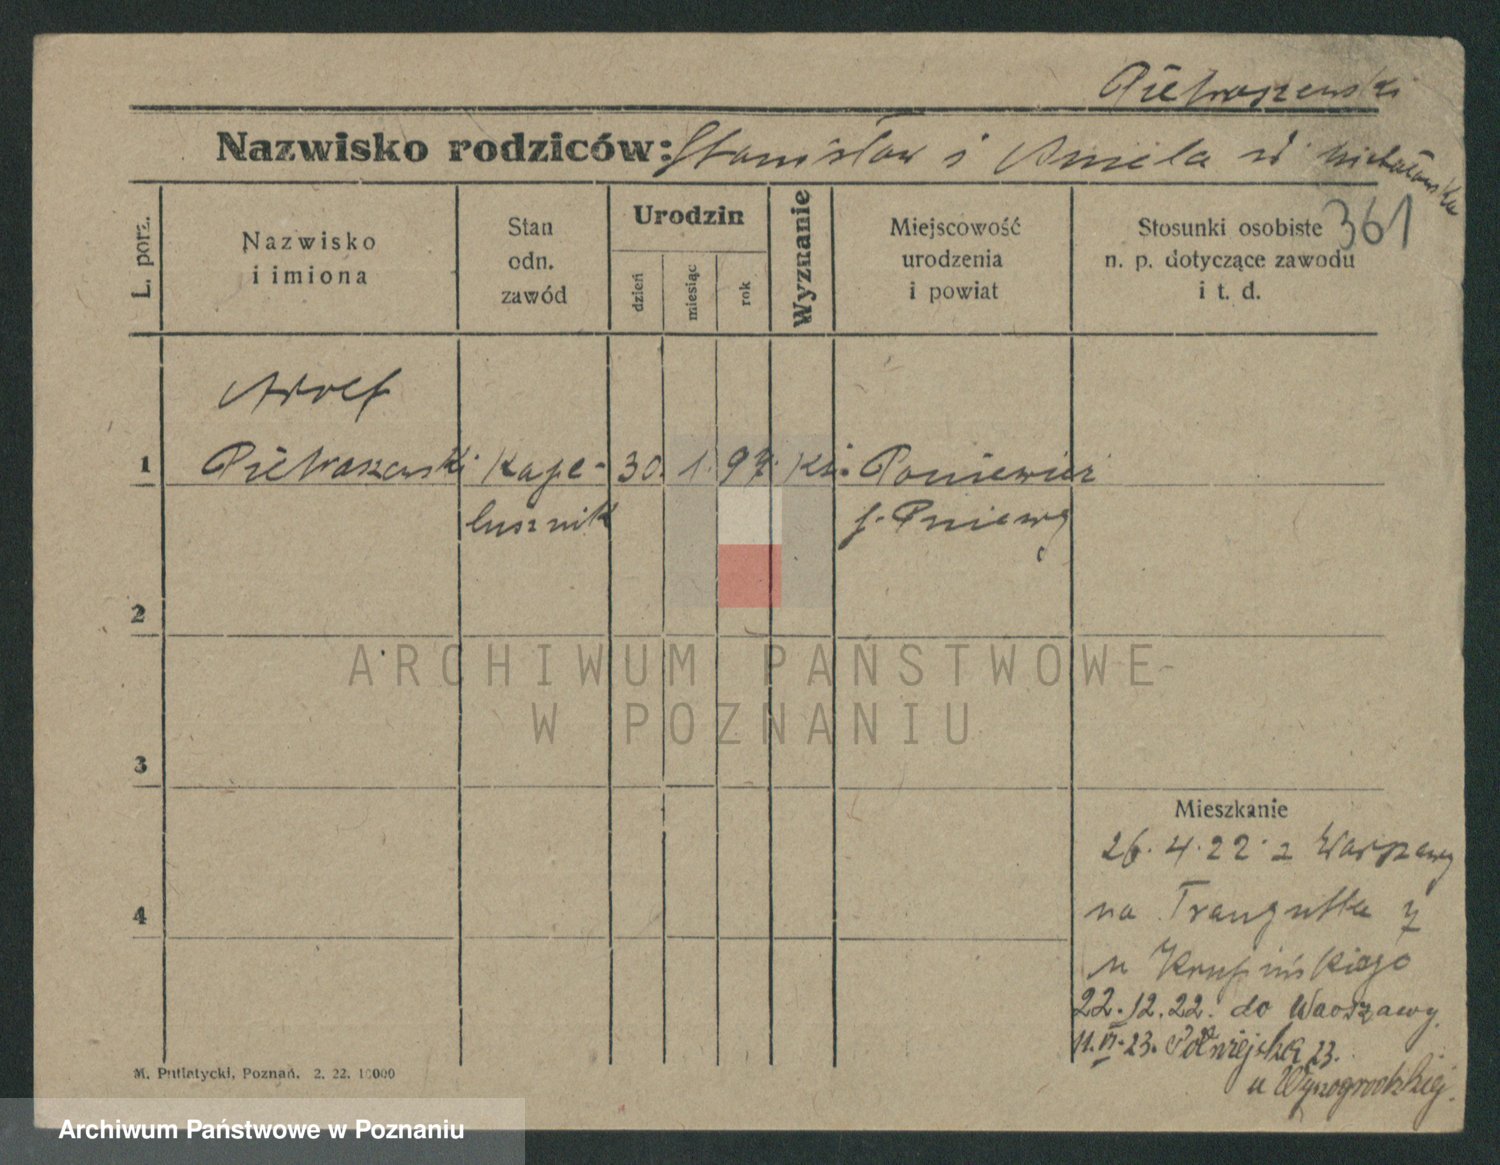 Pietraszewski
Nazwisko rodziców: Stanisław i Aniela z d. Michałowska
361
L. porz.
Nazwisko
i imiona
Stan
odn.
zawód
Urodzin
dzień
miesiąc
rok
Wyznanie
Miejscowość
urodzenia
i powiat
Stosunki osobiste
n. p. dotyczące zawodu
i t. d.
Adolf
1 Pietraszewski Kape- 30. 1. 97. kt.
lusznik
2
3
4
ARCHIWUM PAŃSTWOWE
W POZNANIU
Mieszkanie
26.4.22 z Warszawy
na Traugutta
u Krupińskiego
22.12.22. do Warszawy.
11.VI.23. Półwiejska 23.
u Wynogrodzkiej.
M. Putiatycki, Poznań. 2. 22. 10000
Archiwum Państwowe w Poznaniu